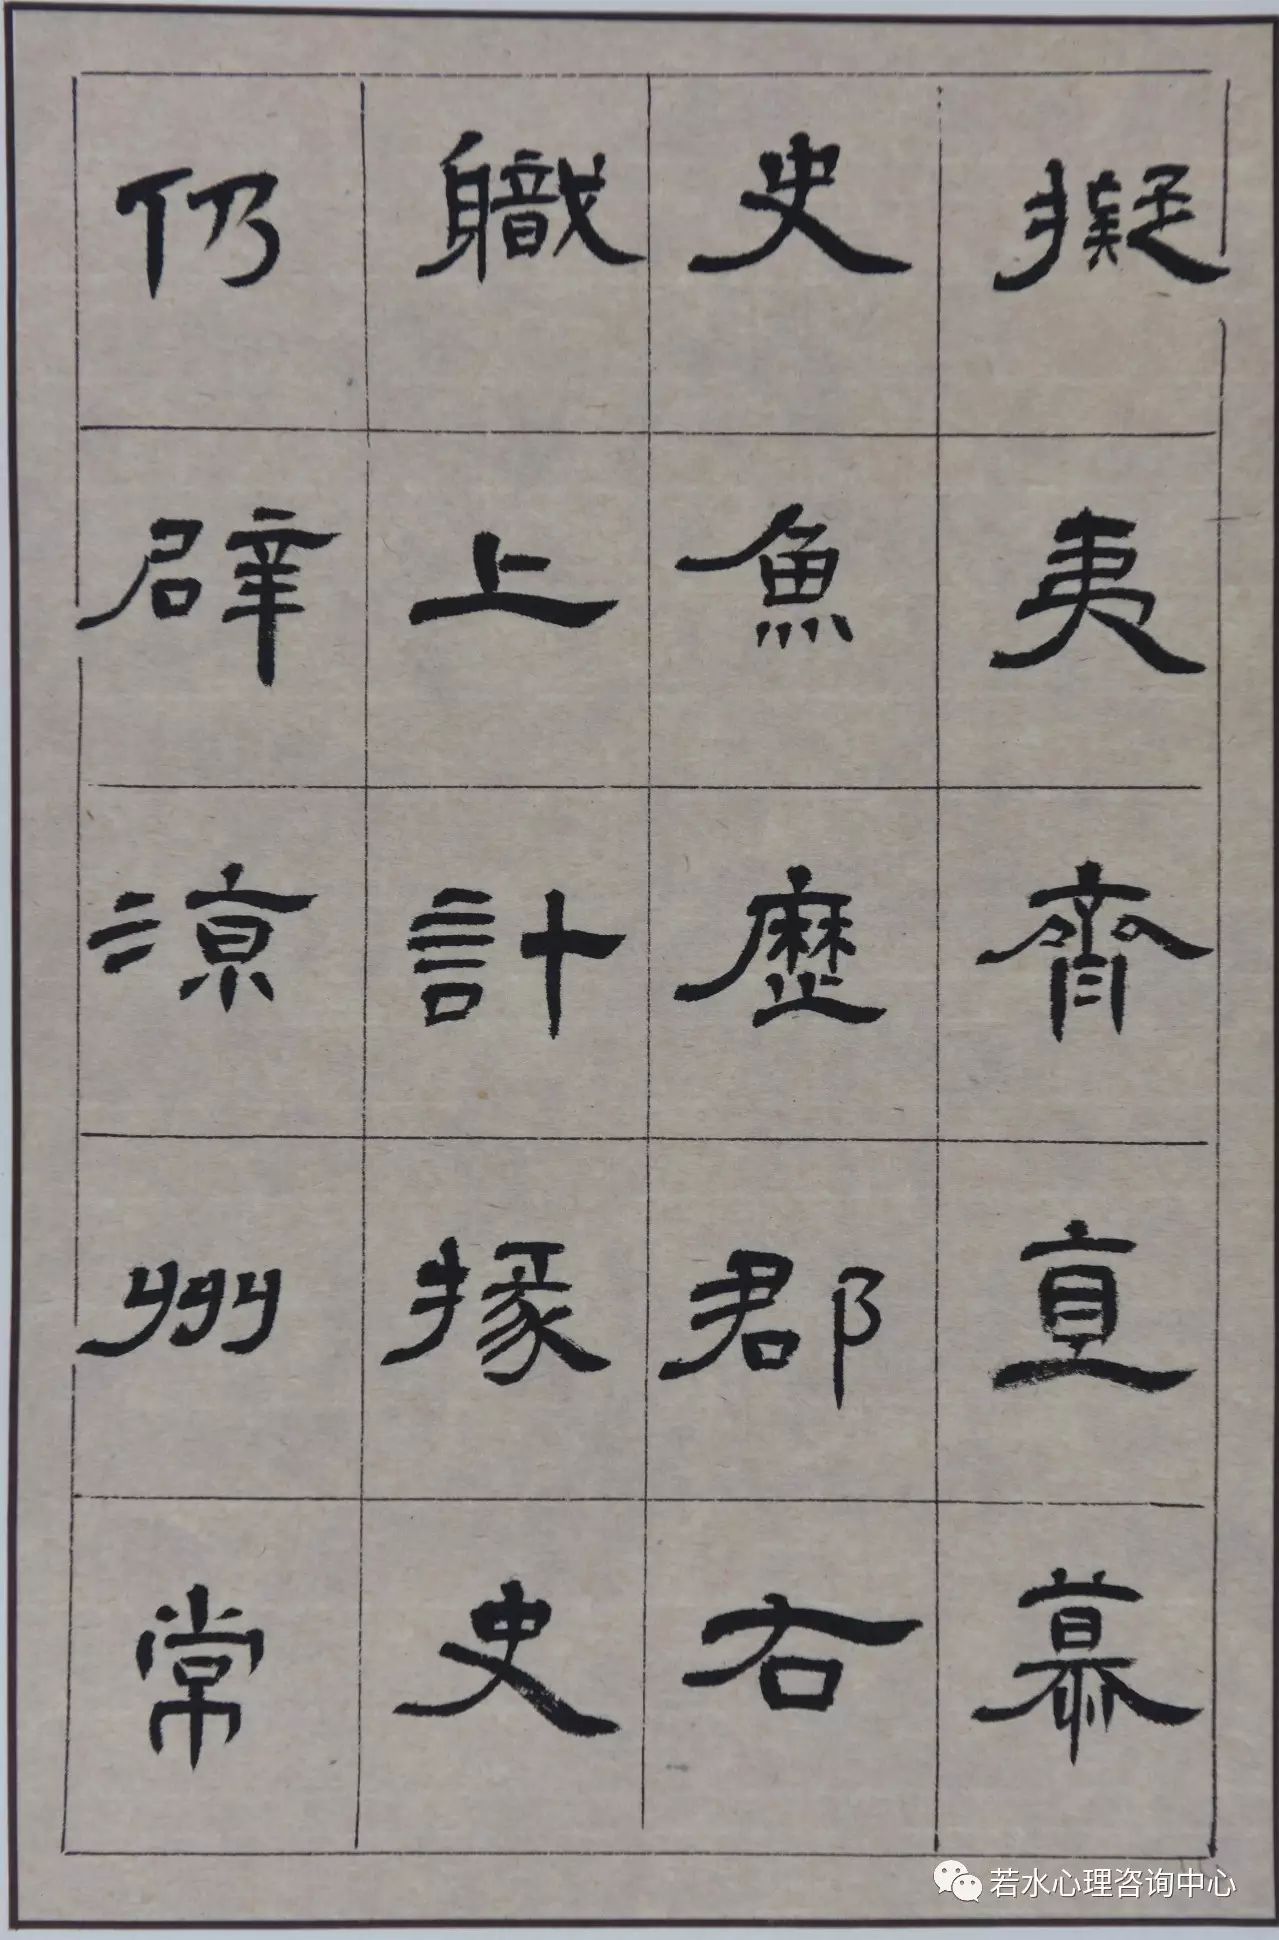 擬夷齊直慕
史魚歷郡右
職上計掾史
仍辟涼州常
若水心理咨询中心